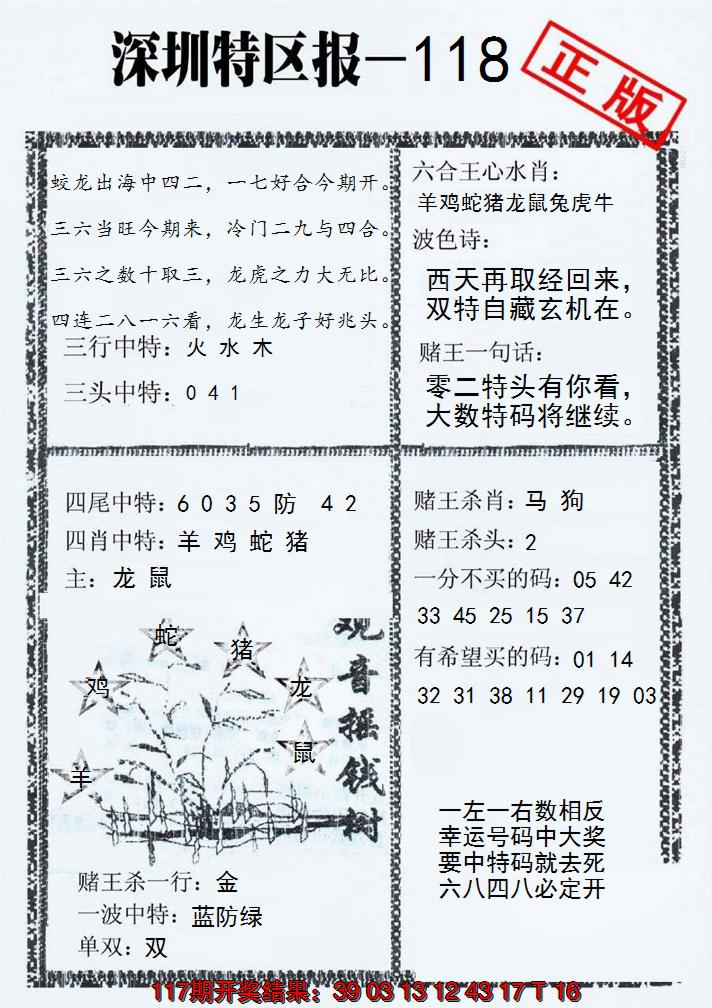 深圳特区报—118
正版
蛟龙出海中四二，一七好合今期开。
三六当旺今期来，冷门二九与四合。
三六之数十取三，龙虎之力大无比。
四连二八一六看，龙生龙子好兆头。
三行中特：火 水 木
三头中特：0 4 1
六合王心水肖：
羊鸡蛇猪龙鼠兔虎牛
波色诗：
西天再取经回来，
双特自藏玄机在。
赌王一句话：
零二特头有你看，
大数特码将继续。
四尾中特：6 0 3 5 防 4 2
四肖中特：羊 鸡 蛇 猪
主：龙 鼠
蛇
猪
鸡
龙
鼠
羊
观音摇钱树
赌王杀一行：金
一波中特：蓝防绿
单双：双
赌王杀肖：马 狗
赌王杀头：2
一分不买的码：05 42
33 45 25 15 37
有希望买的码：01 14
32 31 38 11 29 19 03
一左一右数相反
幸运号码中大奖
要中特码就去死
六八四八必定开
117期开奖结果：39 03 13 12 43 17 T 16